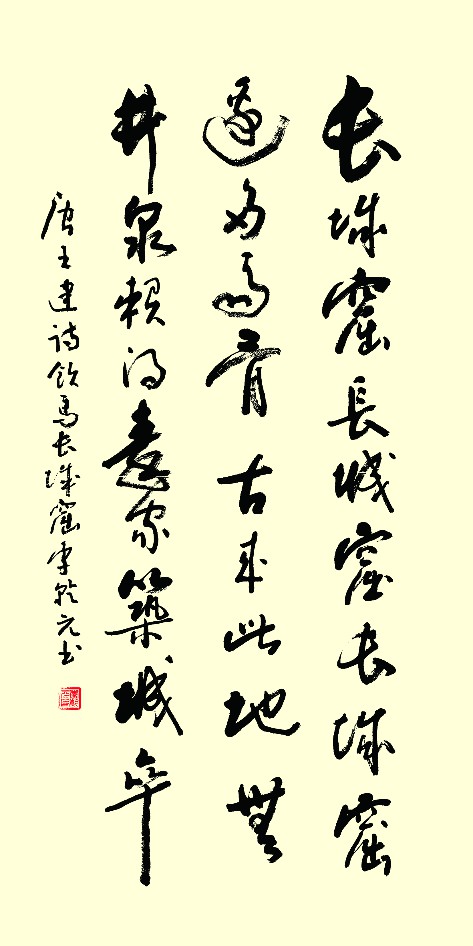 长城窟長城窟长城窟
邊多馬骨古来此地無
井泉賴得秦家築城卒
唐王建诗飲馬长城窟李乾元书